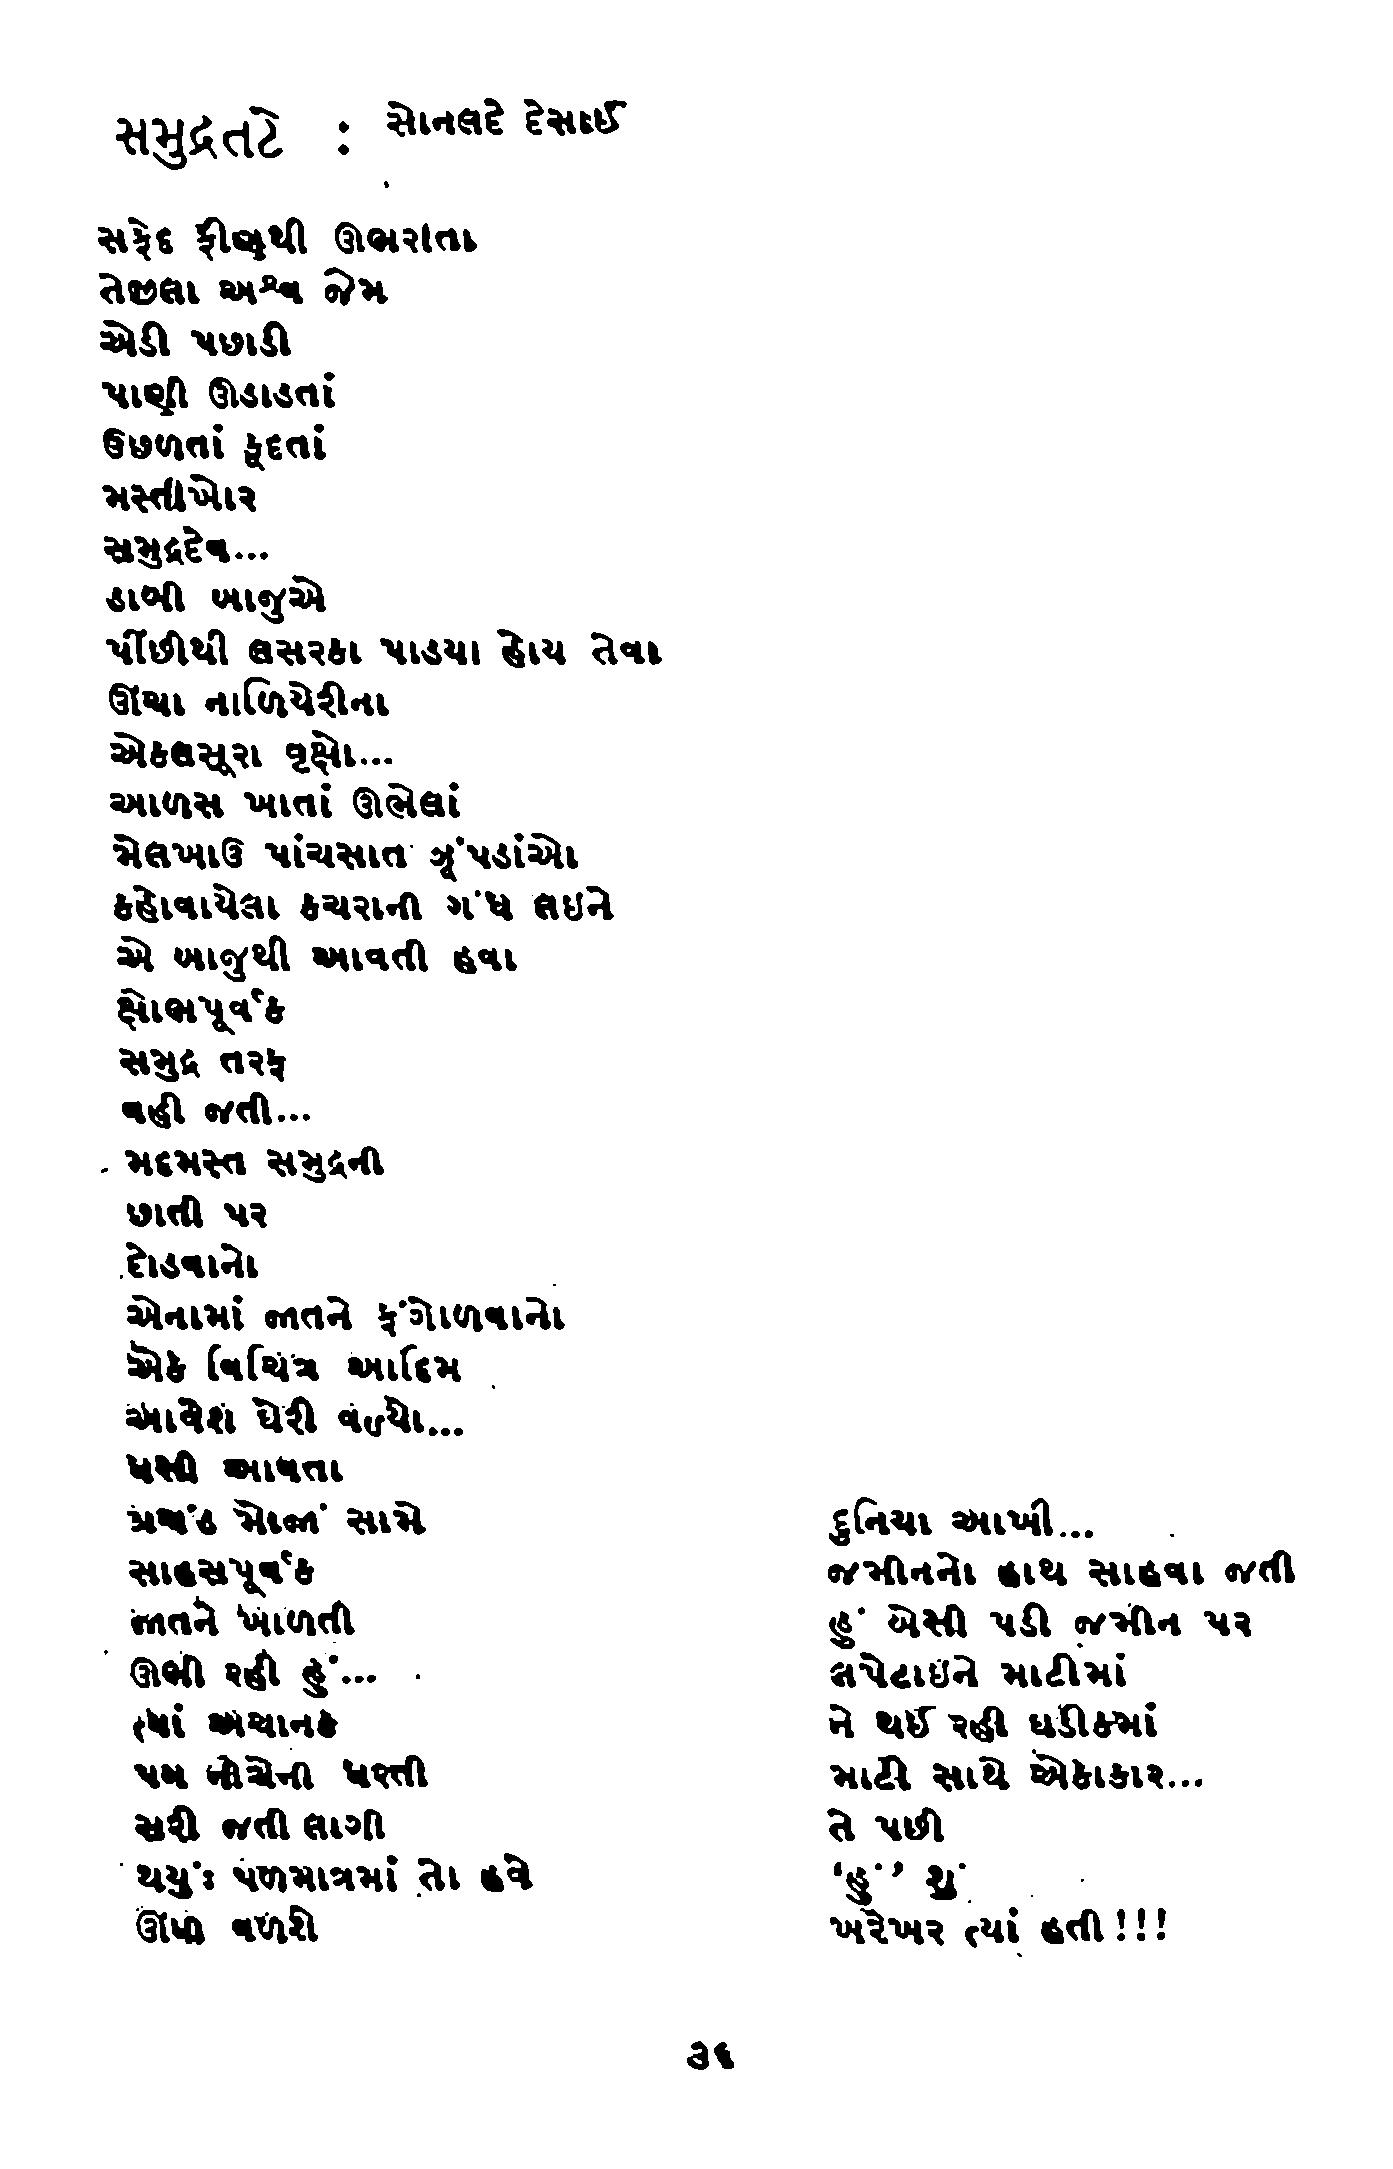 સમુદ્રતટે : સોનલદે દેસાઈ
સફેદ ફીણથી ઊભરાતા
તેજીલા અશ્વ જેમ
એડી પછાડી
પાણી ઊડાડતાં
ઉછળતાં કૂદતાં
મસ્તીખોર
સમુદ્રદેવ...
ડાબી બાજુએ
પીંછીથી લસરકા પાડયા હોય તેવા
ઊંચા નાળિયેરીના
એકલસૂરા વૃક્ષો...
આળસ ખાતાં ઊભેલાં
મેલખાઉ પાંચસાત ઝૂંપડાંઓ
કહોવાયેલા કચરાની ગંધ લઇને
એ બાજુથી આવતી હવા
ક્ષોભપૂર્વક
સમુદ્ર તરફ
વહી જતી...
મદમસ્ત સમુદ્રની
છાતી પર
દોડવાનો
એનામાં જાતને ફંગોળવાનો
એક વિચિત્ર આદિમ
આવેશ ઘેરી વળ્યો...
ધસી આવતા
પ્રચંડ મોજાં સામે
સાહસપૂર્વક
જાતને ખાળતી
ઊભી રહી હું...
ત્યાં અચાનક
પગ નીચેની ધરતી
સરી જતી લાગી
થયું: પળમાત્રમાં તો હવે
ઊંધી વળશે
દુનિયા આખી...
જમીનનો હાથ સાહવા જતી
હું બેસી પડી જમીન પર
લપેટાઇને માટીમાં
ને થઈ રહી ઘડીકમાં
માટી સાથે એકાકાર...
તે પછી
‘હું’ શું
ખરેખર ત્યાં હતી!!!
૩૬